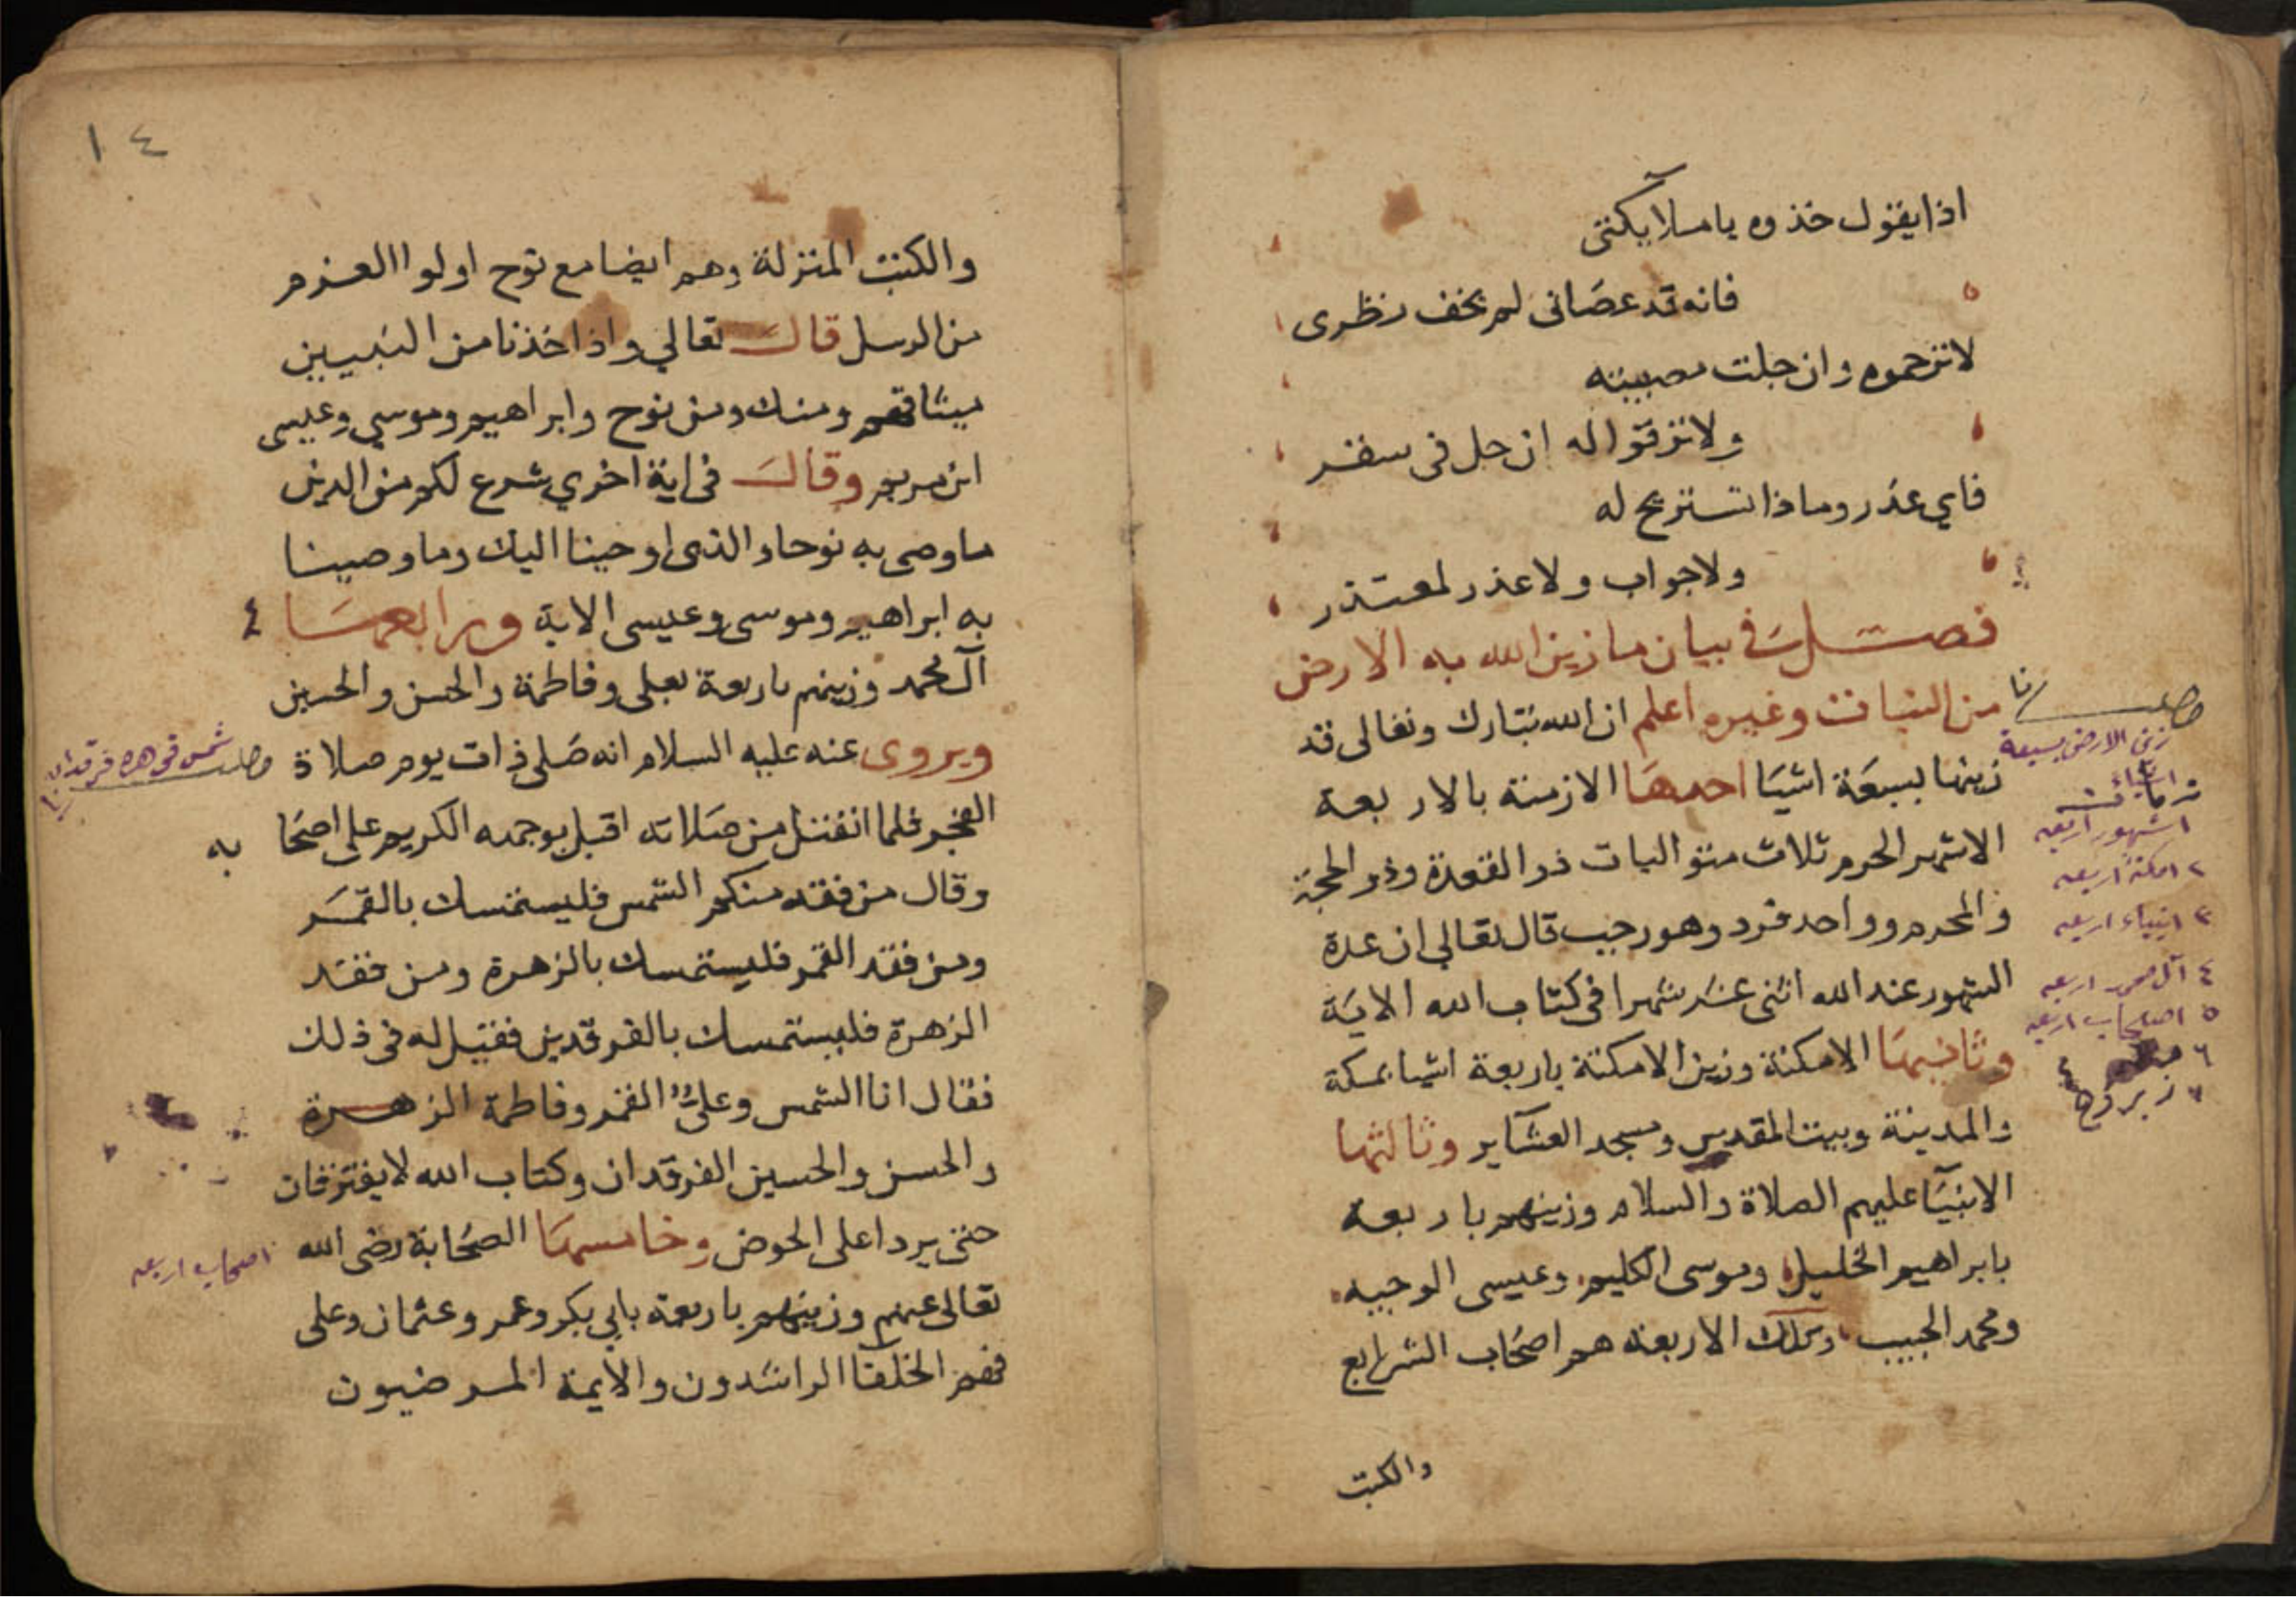 اذا يقول خذوه يا ملآيكتى
فانه قد عصانى لم يخف نظرى
لا ترحموه وان جلت مصيبته
ولا ترقوا له ان حل فى سفر
فاي عذر وماذا تستريح له
ولا جواب ولا عذر لمعتذر
فصل فى بيان ما زين الله به الارض
من النبات وغيره اعلم ان الله تبارك وتعالى قد
زينها بسبعة اشيا احدها الازمنة بالاربعة
الاشهر الحرم ثلاث متواليات ذو القعدة وذو الحجة
والمحرم وواحد فرد وهو رجب قال تعالي ان عدة
الشهور عند الله اثنى عشر شهرا فى كتاب الله الاية
وثانيها الامكنة وزين الامكنة باربعة اشيا بمكة
والمدينة وبيت المقدس ومسجد العشآير وثالثها
الانبيا عليهم الصلاة والسلام وزينهم باربعة
بابراهيم الخليل وموسى الكليم وعيسى الوجيه
ومحمد الحبيب وتلك الاربعة هم اصحاب الشرايع
والكتب
زين الارض بسبعة
اشياء
اشهور اربعه
٢ امكنة اربعه
٣ انبياء اربعه
٤ آل محمد اربعه
٥ اصحاب اربعه
٦
٧
١٤
والكتب المنزلة وهم ايضا مع نوح اولوا العزم
من الرسل قال تعالي واذ اخذنا من النبيين
ميثاقهم ومنك ومن نوح وابراهيم وموسي وعيسى
ابن مريم وقال فى اية اخري شرع لكم من الدين
ما وصى به نوحا والذى اوحينا اليك وما وصينا
به ابراهيم وموسى وعيسى الاية ورابعها ٤
آل محمد وزينهم باربعة بعلى وفاطمة والحسن والحسين
ويروى عنه عليه السلام انه صلى ذات يوم صلاة
الفجر فلما انفتل من صلاته اقبل بوجهه الكريم على اصحا به
وقال من فقد منكم الشمس فليستمسك بالقمر
ومن فقد القمر فليستمسك بالزهرة ومن فقد
الزهرة فليستمسك بالفرقدين فقيل له فى ذلك
فقال انا الشمس وعلىٌّ القمر وفاطمة الزهرة
والحسن والحسين الفرقدان وكتاب الله لا يفترقان
حتى يردا على الحوض وخامسها الصحابة رضى الله
تعالى عنهم وزينهم باربعة بابي بكر وعمر وعثمان وعلى
فهم الخلفا الراشدون والايمة المرضيون
اصحاب اربعه